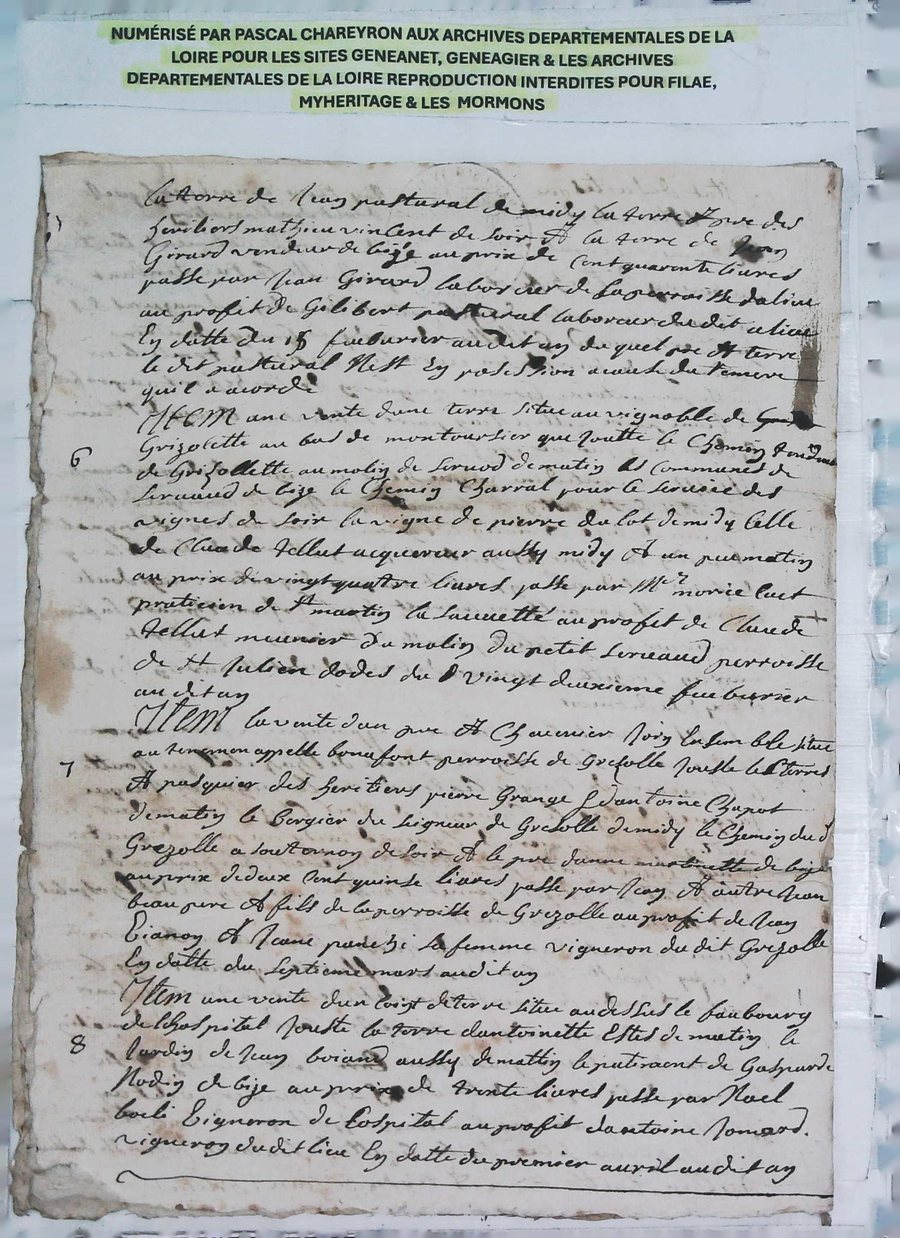 NUMÉRISÉ PAR PASCAL CHAREYRON AUX ARCHIVES DEPARTEMENTALES DE LA
LOIRE POUR LES SITES GENEANET, GENEAGIER & LES ARCHIVES
DEPARTEMENTALES DE LA LOIRE REPRODUCTION INTERDITES POUR FILAE,
MYHERITAGE & LES MORMONS
la terre de Jean pastural de midy la terre & pre des
heritiers mathieu vincent de soir & la terre de Jean
Girard vendeur de bize au prix de cent quarente livres
passe par Jean Girard laboreur de la perroisse dalieu
au profit de Gilibert pastural laboreur du dit alieu
En datte du 18 feuburier au dit an du quel pre & terre
le dit pastural Nest En posession a cause du remere
quil a acorde
Item une vente dune terre situe au vignoble de
Grizolette au bas de montoursier que Joutte le Chemin
6
de Grisollette au molin de de matin les communes de
de bize le Chemin Charral pour le service des
vignes de soir la vigne de pierre du lot de midy Celle
de Claude tellut acquereur aussy midy & un peu matin
au prix de vingt quatre livres passe par
praticien de St martin la sauvetté au profit de Claude
tellut meunier du molin du petit perroisse
de St Julien dodes du vingt deuxieme feuburier
au dit an
Item la vente dun pre & Chavenier Join Ensemble situe
au tenemen appelle bonefont perroisse de Grezolle Jouste les terres
7
& pasquier des heritiers pierre Grange & dantoine Chapot
de matin le Bergier du seigneur de Grezolle de midy le Chemin du d
Grezolle a souternon de soir & le pre danne de bize
au prix de deux Cent quinse livres passe par Jean & autre Jean
beau pere & fils de la perroisse de Grezolle au profit de Jean
& Jeane sa femme vigneron du dit Grezolle
En datte du septieme mars au dit an
Item une vente dun Coingt de terre situe au dessus le faubourg
de lhospital Jouste la terre dantoinette Estes de matin le
8
Jardin de Jean aussy de mattin le patiment de Gasparde
Nodin de bize au prix de trente livres passe par Noel
vigneron de lospital au profit dantoine
vigneron du dit lieu En datte du premier avril au dit an